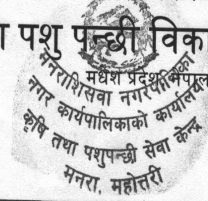 पशु पन्छी विक
मनराशिसवा नगरपालिका
मधेश प्रदेश नेपाल
नगर कार्यपालिकाको कार्यालय
कृषि तथा पशुपन्छी सेवा केन्द्र
मनरा, महोत्तरी